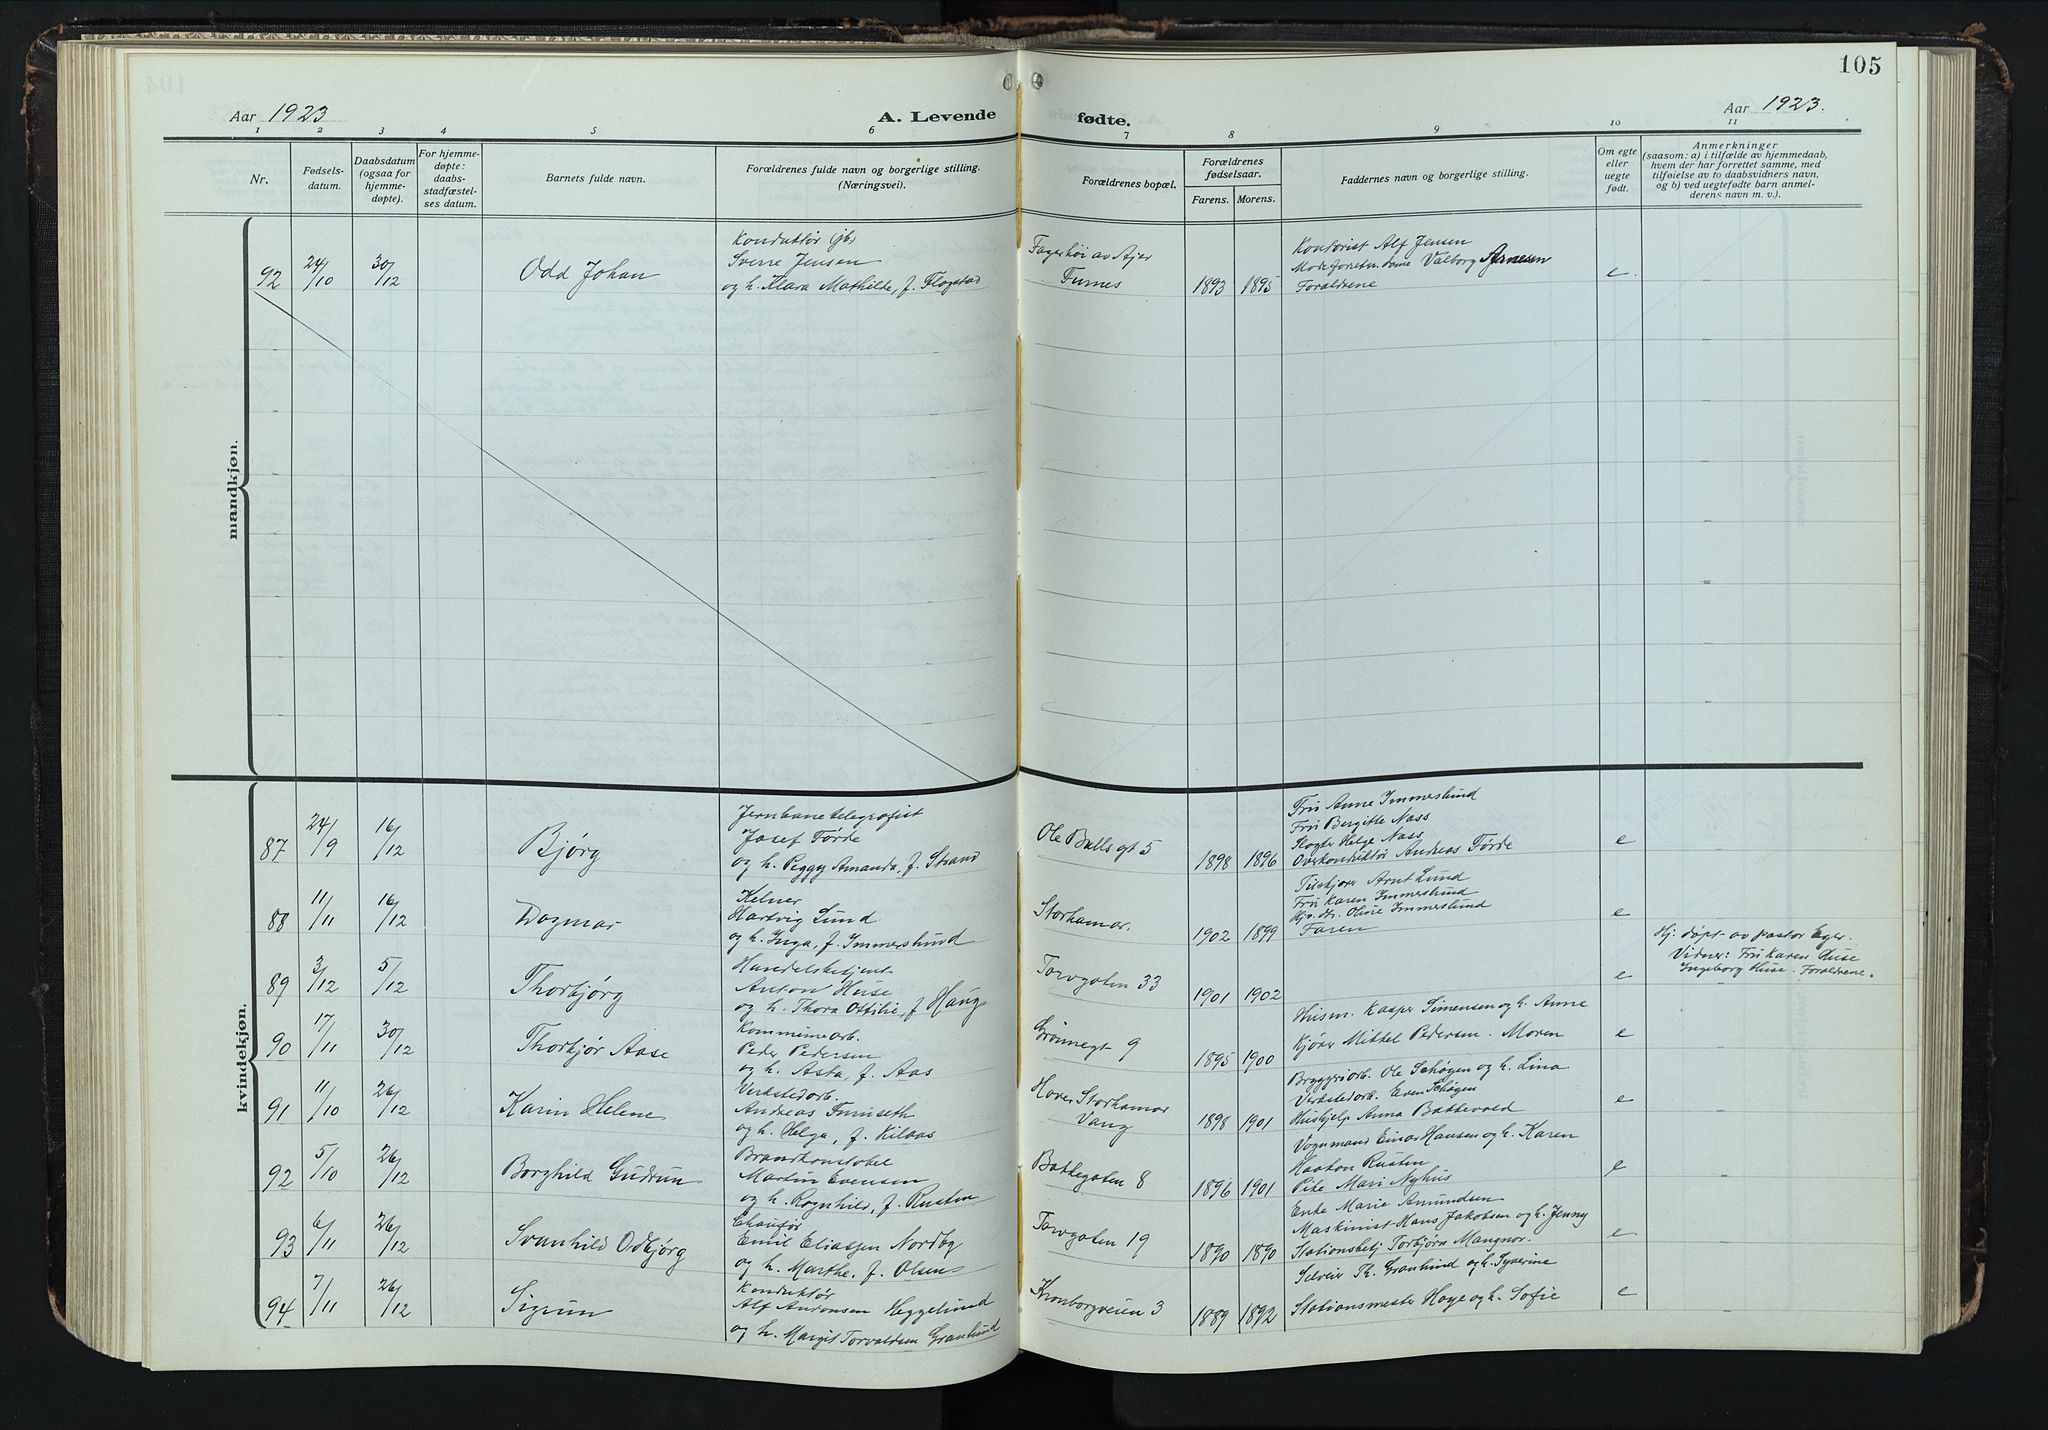 105
Aar 1923
A. Levende
fødte.
Aar 1923.
1 2 3 4 5 6 7 8 9 10 11
Nr.
Fødsels-
datum.
Daabsdatum
(ogsaa for
hjemme-
døpte).
For hjemme-
døpte:
daabs-
stadfæstel-
ses datum.
Barnets fulde navn.
Forældrenes fulde navn og borgerlige stilling.
(Næringsvei).
Forældrenes bopæl.
Forældrenes
fødselsaar.
Farens. Morens.
Faddernes navn og borgerlige stilling.
Om egte
eller
uegte
født.
Anmerkninger
(saasom: a) i tilfælde av hjemmedaab,
hvem der har forrettet samme, med
tilføielse av to daabsvidners navn,
og b) ved uegtefødte barn anmel-
derens navn m. v.).
mandkjøn.
92
24/10
30/12
Odd Johan
Konduktør (jb.)
Sverre Jensen
og h. Klara Mathilde, f. Flagstad
Fagerhøi av Ajer
Furnes
1893 1895
Kontorist Alf Jensen
Valborg Arnesen
Foraldrene
e.
kvindekjøn.
87
24/9
16/12
Bjørg
Jernbanetelegrafist
Josef Førde
og h. Peggy Amanda, f. Strand
Ole Bulls gt 5
1898 1896
Fru Anne Immerslund
Fru Bergitte Næss
Slagter Helge Næss
Overkonduktør Andreas Førde
e
88
11/11
16/12
Dagmar
Kelner
Hartvig Lund
og h. Inga, f. Immerslund
Storhamar.
1902 1899
Arnt Lund
Fru Karen Immerslund
Oline Immerslund
Faren
e
89
3/12
5/12
Thorbjørg
Handelsbetjent
Anton Huse
og h. Thora Ottilie, f. Haug
Torvgaten 33
1901 1902
e
Hj: døpt av pastor Eger.
Vidner: Fru Karen Huse
Ingeborg Huse. Foraldrene.
90
17/11
30/12
Thorbjør Aase
Kommunearb.
Peder Pedersen
og h. Asta, f. Aas
Grønnegt 9
1895 1900
Husm. Kasper Simensen og h. Anne
Kjører Mikkel Pedersen. Moren
e
91
11/10
26/12
Karin Helene
Verkstedarb.
Andreas Furuseth
og h. Helga, f. Kilaas
Storhamar
Vang
1898 1901
Bryggeriarb. Ole Schøgen og h. Lina
Verkstedarb. Even Schøgen
Hushjelp Anna Battevold
e
92
5/10
26/12
Borghild Gudrun
Brandkonstabel
Martin Evensen
og h. Ragnhild, f. Rusten
Bakkegaten 8
1896 1901
Vognmand Einar Hansen og h. Karen
Haakon Rusten
Pike Mari Nyhus
e
93
6/11
26/12
Svanhild Odbjørg
Chaufør
Emil Eliassen Nordby
og h. Marthe, f. Olsen
Torvgaten 19
1890 1890
Enke Marie Amundsen
Maskinist Hans Jakobsen og h. Jenny
Stationsbetj Torbjørn Mangnor.
e
94
7/11
26/12
Sigrun
Konduktør
Alf Antonsen Heggelund
og h. Margit Torvaldsen Granlund
Kronborgveien 3
1889 1892
Selveier Th. Granlund og h. Syverine
Stationsmester Haye og h. Sofie
e